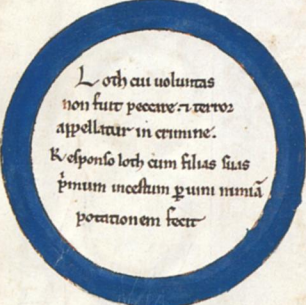 Loth cui uoluntas
non fuit peccare ⁊ terror
appellatur in crimine.
Responso loth cum filias suas
p̄mum incestum ꝑ uini nimiā
potationem fecit